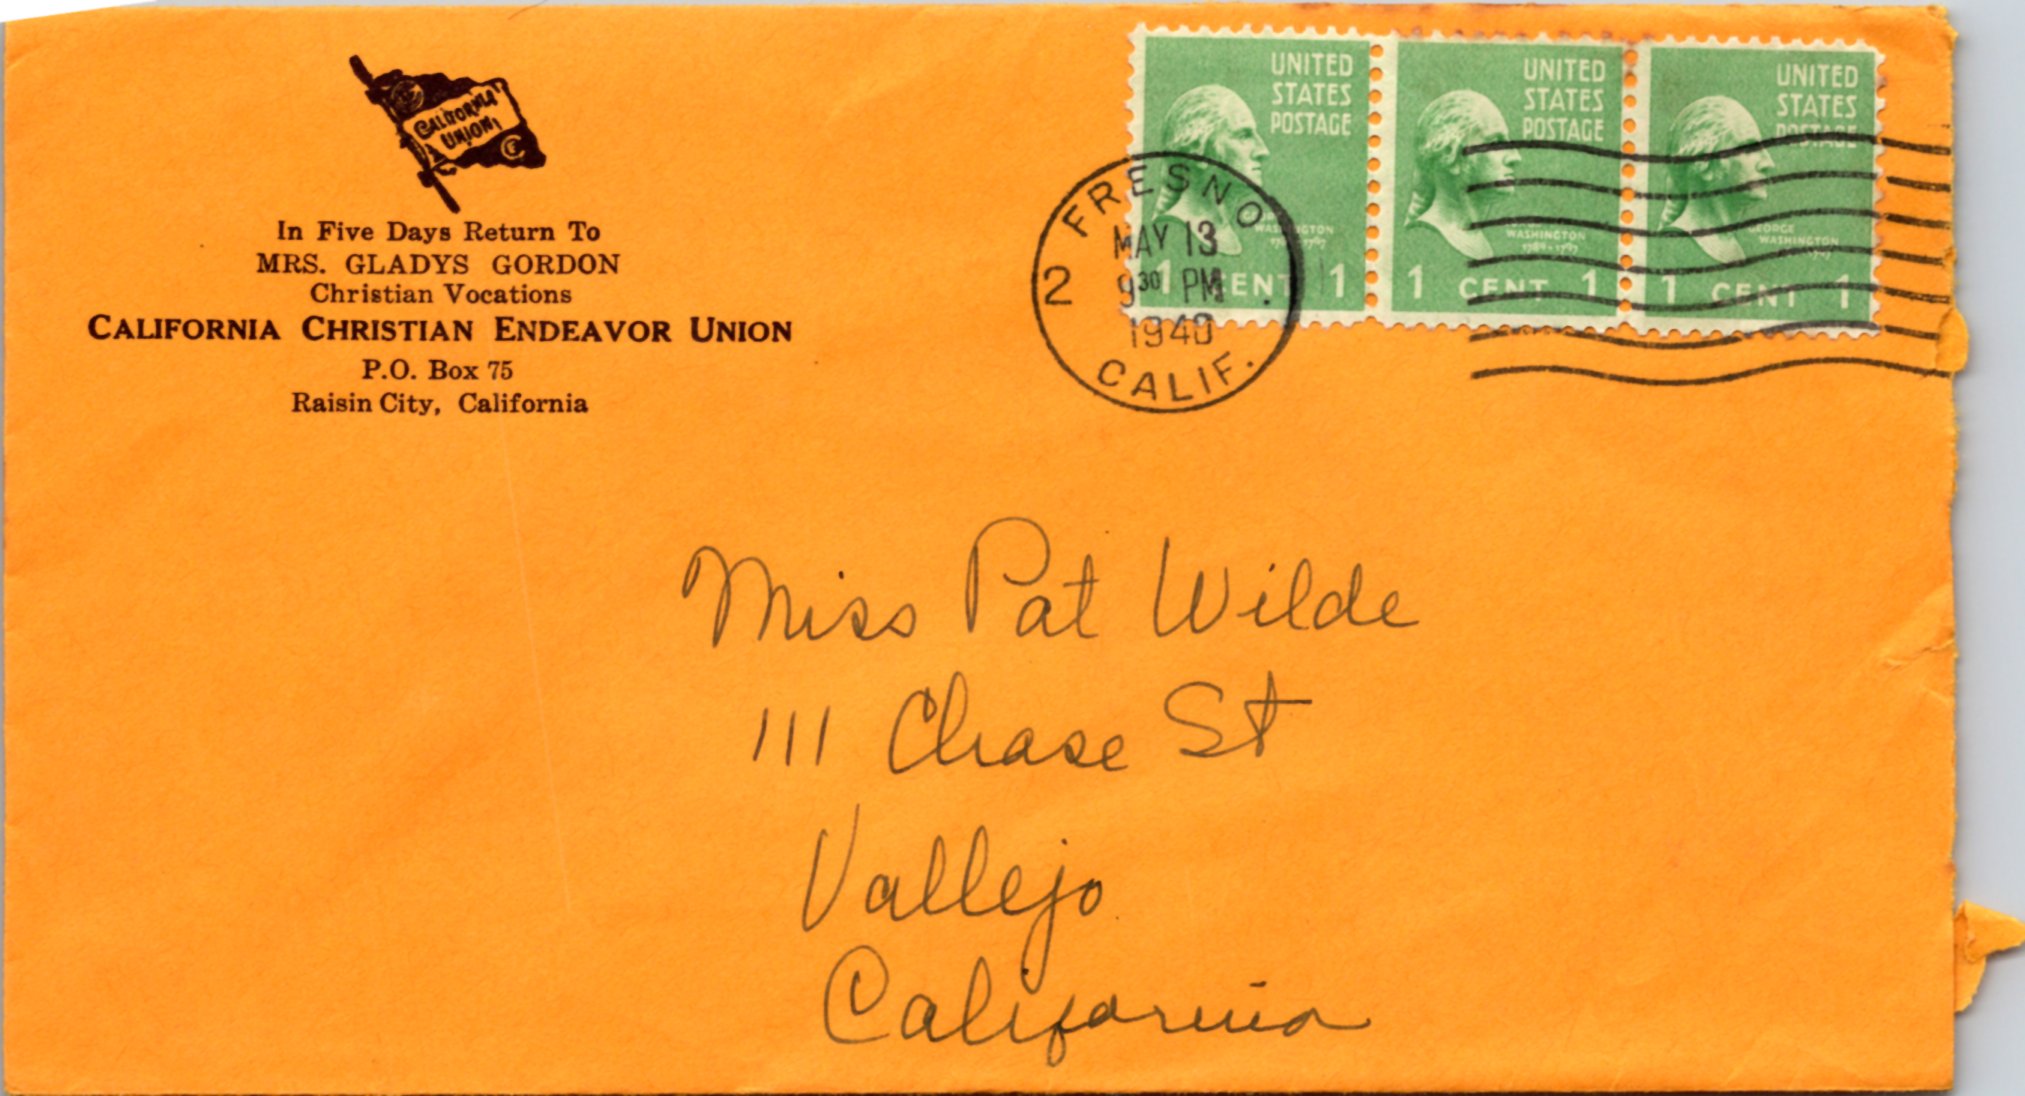 CALIFORNIA
UNION
In Five Days Return To
MRS. GLADYS GORDON
Christian Vocations
CALIFORNIA CHRISTIAN ENDEAVOR UNION
P.O. Box 75
Raisin City, California
FRESNO
2
MAY 13
9 30 PM
1940
CALIF.
UNITED
STATES
POSTAGE
WASHINGTON
1 CENT 1
UNITED
STATES
POSTAGE
WASHINGTON
1789-1797
1 CENT 1
UNITED
STATES
POSTAGE
GEORGE
WASHINGTON
1 CENT 1
Miss Pat Wilde
111 Chase St
Vallejo
California